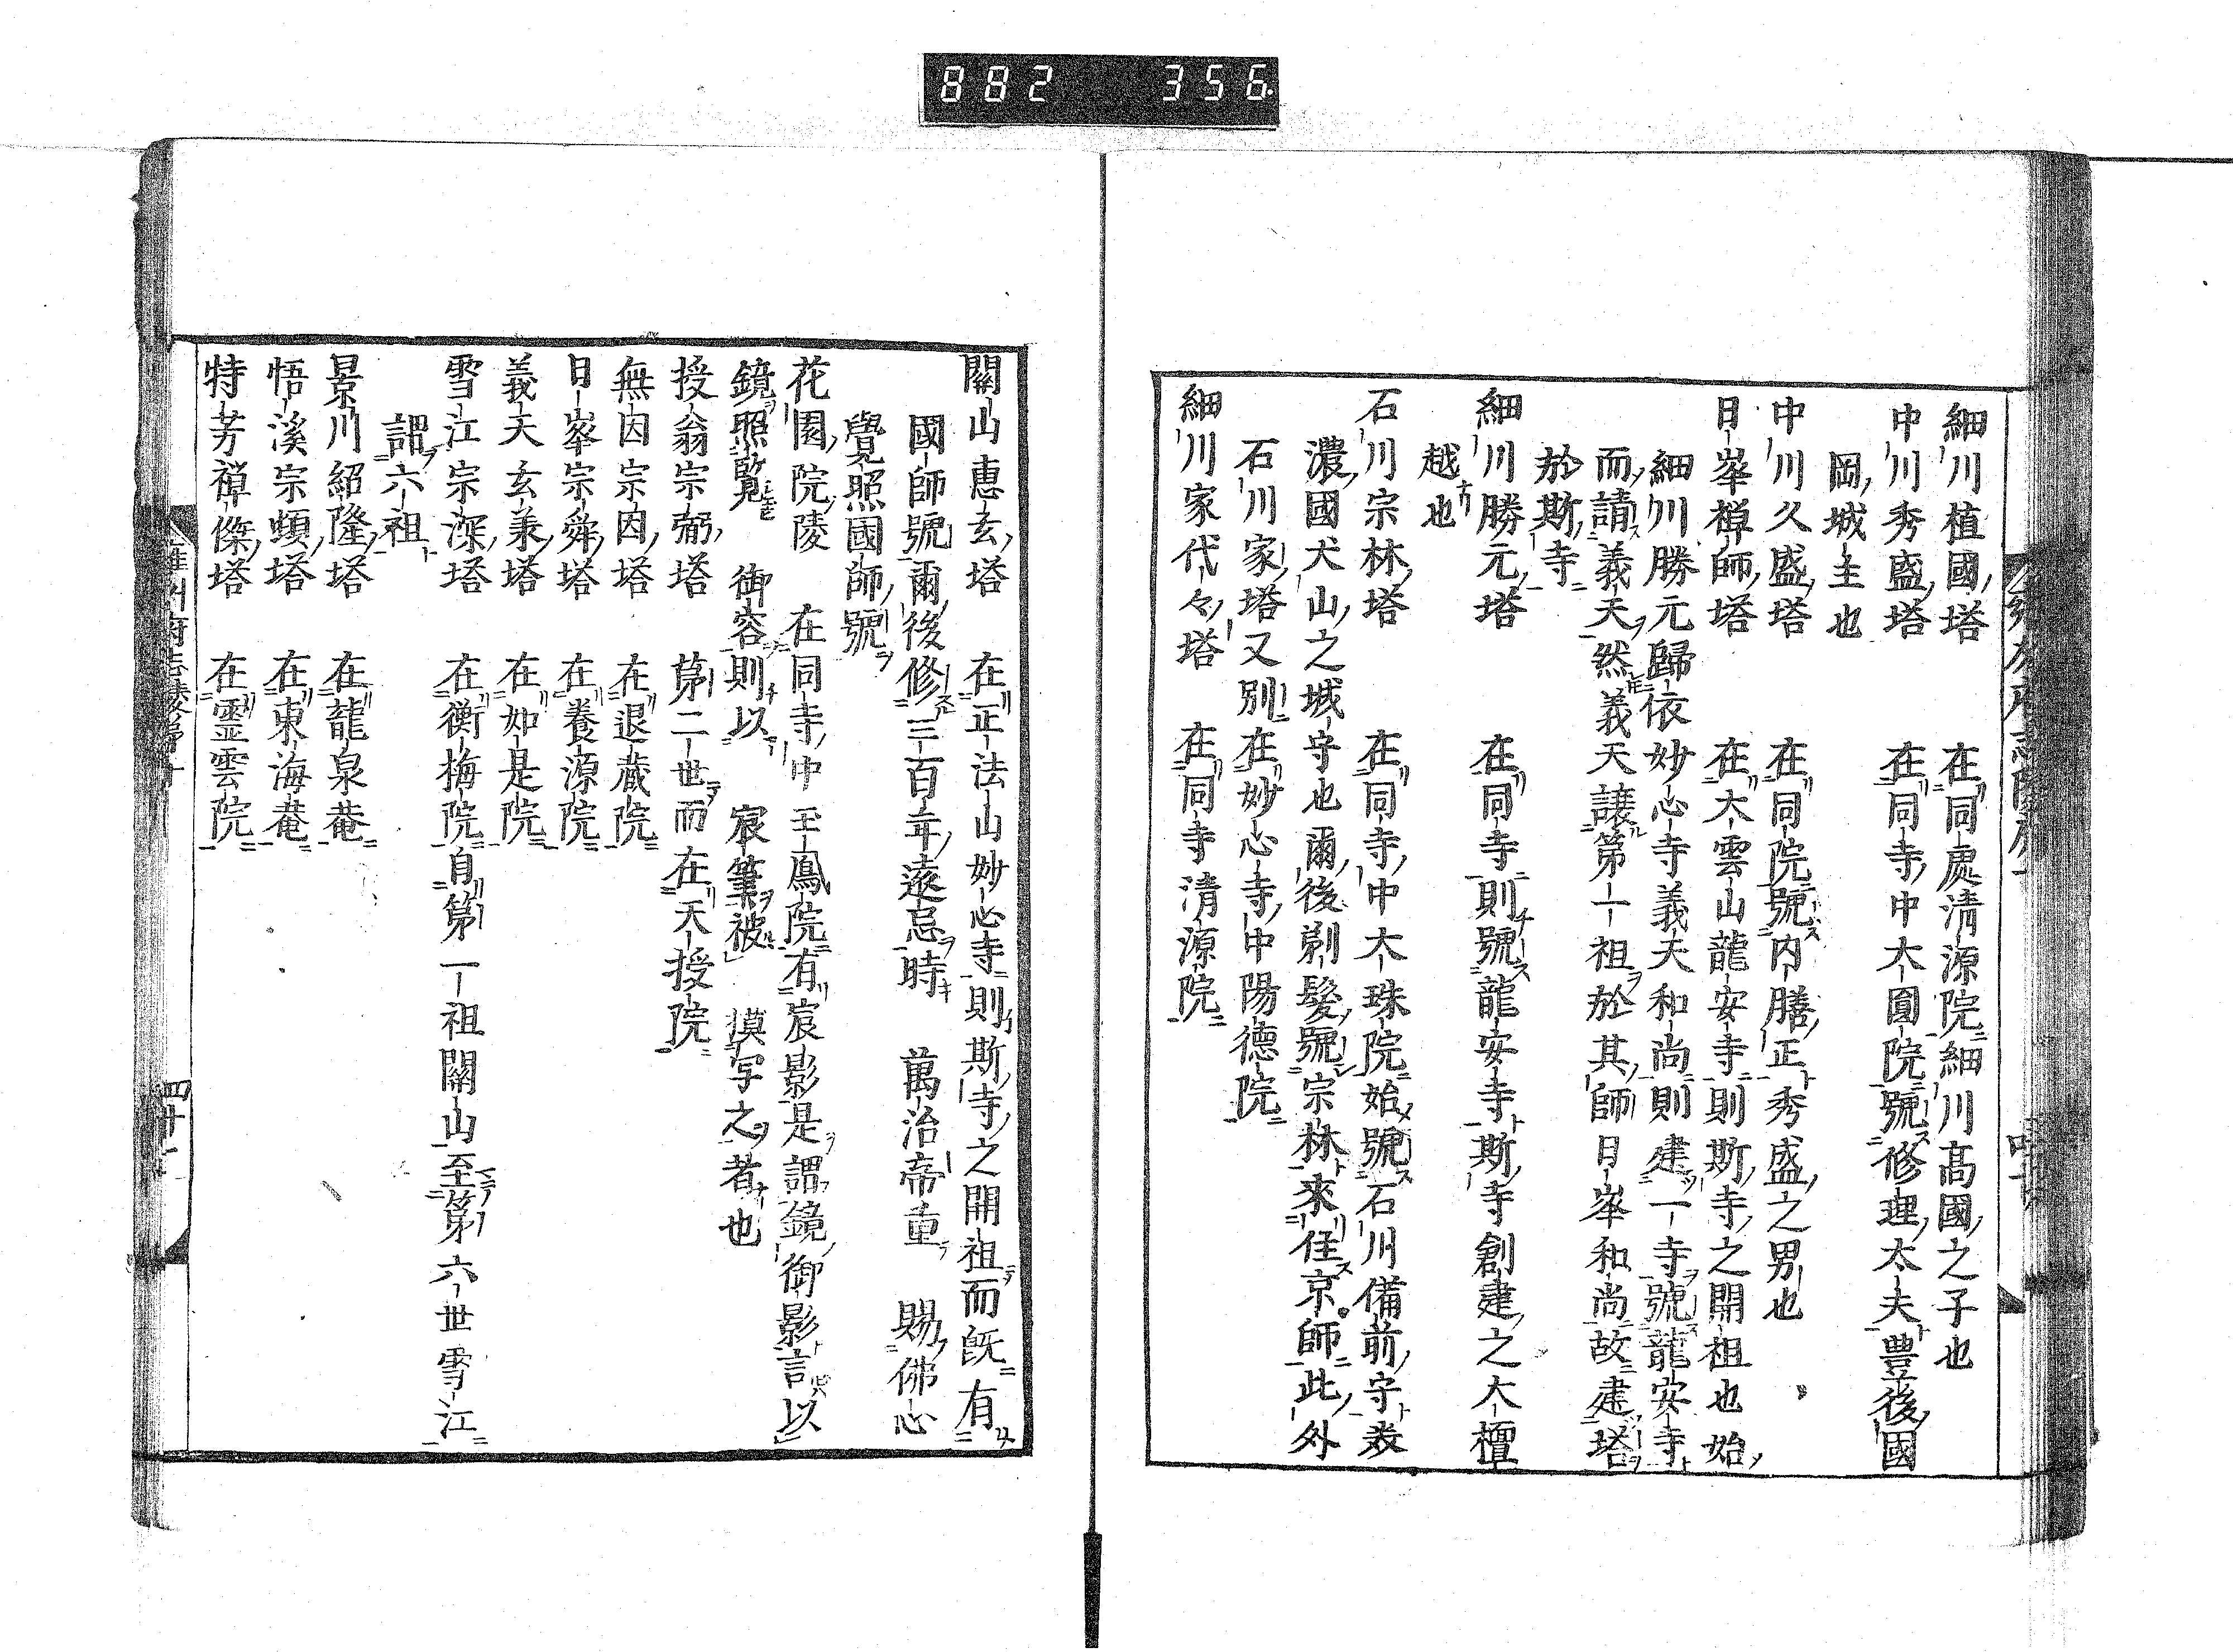 882 356
細川植國塔 在同處清源院細川髙國之子也
中川秀盛塔 在同寺中大圓院號修理太夫豊後國
岡城主也
中川久盛塔 在同院號内膳正秀盛之男也
日峯禅師塔 在大雲山龍安寺則斯寺之開祖也始
細川勝元歸依妙心寺義天和尚則建一寺號龍安寺
而請義天然義天讓第一祖於其師日峯和尚故建塔
於斯寺
細川勝元塔 在同寺則號龍安寺斯寺創建之大檀
越也
石川宗林塔 在同寺中大珠院始號石川備前守
濃國犬山之城守也爾後剃髮號宗林來住京師此外
石川家塔又別在妙心寺中陽德院
細川家代々塔 在同寺清源院
關山惠玄塔 在正法山妙心寺則斯寺之開祖而既有
國師號爾後修三百年遠忌時 萬治帝重 賜佛心
覺照國師號
花園院陵 在同寺中玉鳳院有宸影是謂鏡御影言以
鏡照覧 御容則以 宸筆被 摸写之者也
授翁宗弼塔 苐二世而在天授院
無因宗因塔 在退蔵院
日峯宗舜塔 在養源院
義天玄承塔 在如是院
雪江宗深塔 在衡梅院自第一祖關山至第六世雪江
謂六祖
景川紹隆塔 在龍泉菴
悟溪宗頓塔 在東海菴
特芳禅傑塔 在霊雲院
雍州府志陵第十 四十二